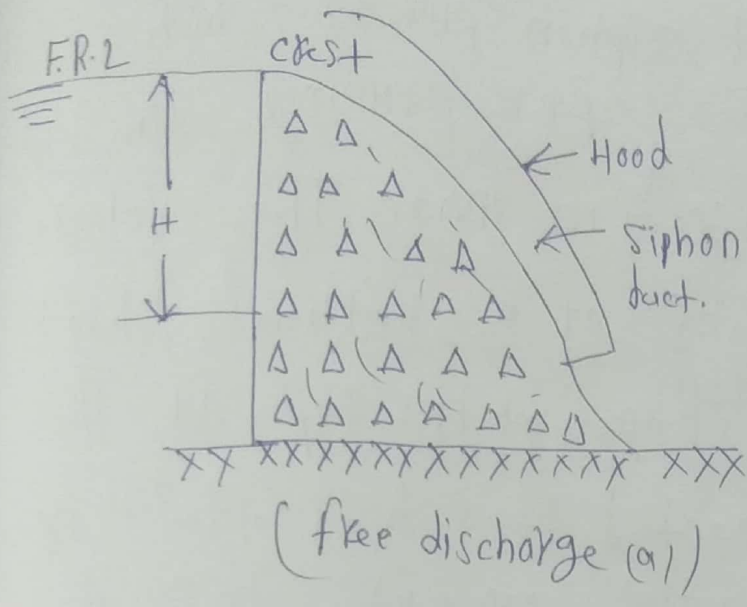 F.R.L
crest
Hood
H
Siphon
duct.
(free discharge (a))